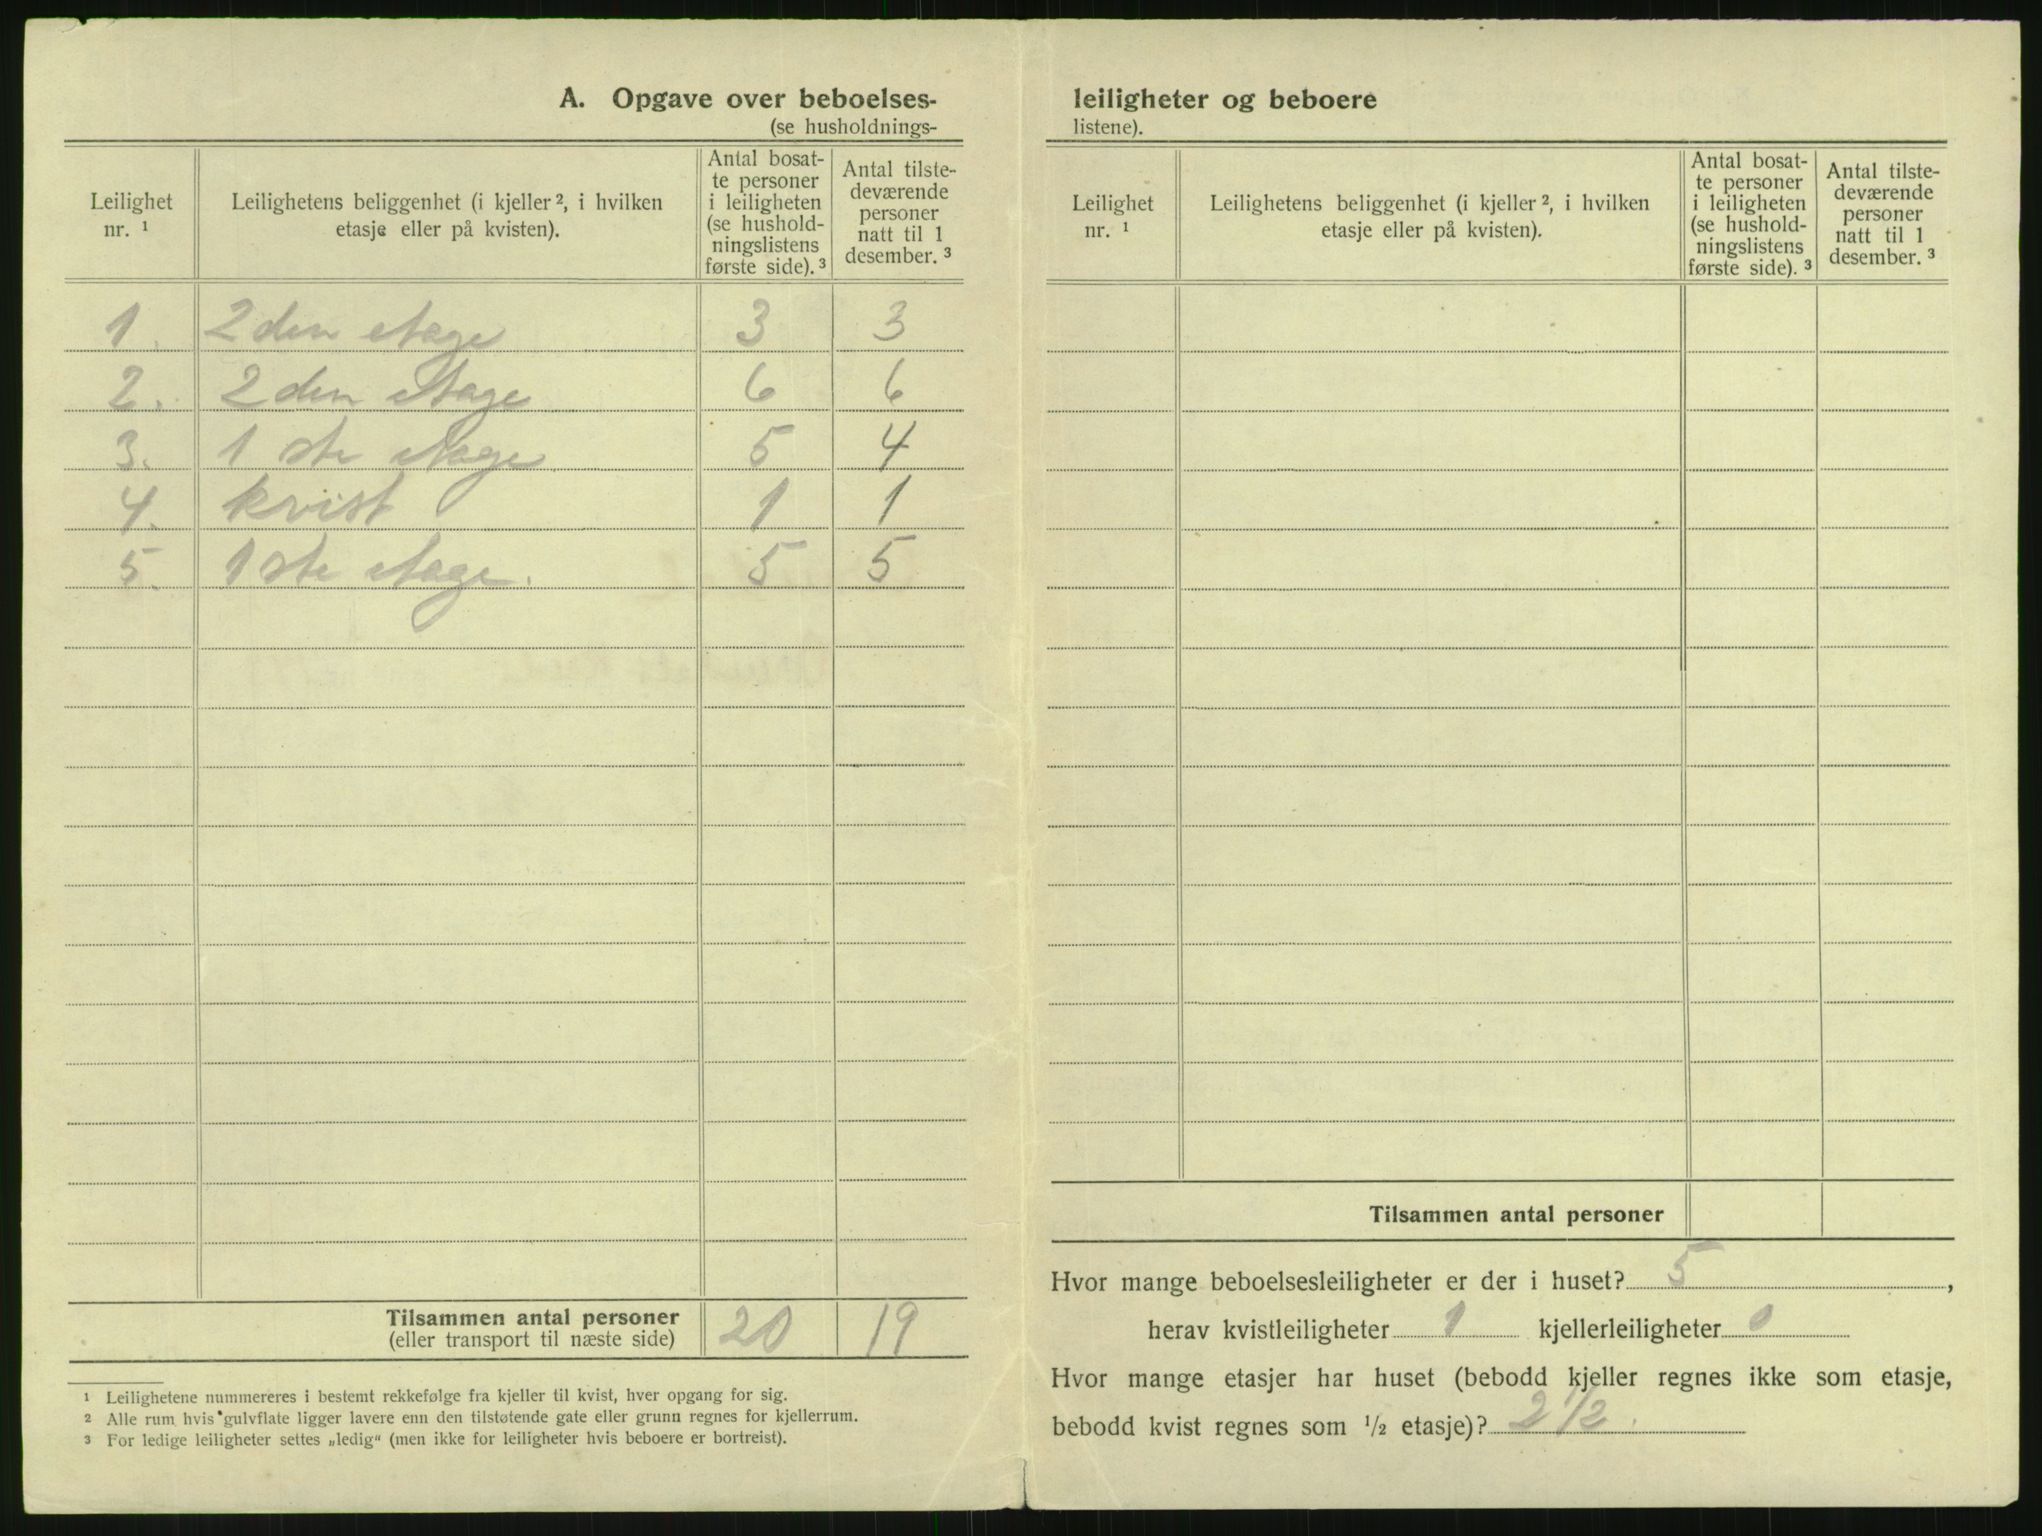 A. Opgave over beboelses-
(se husholdnings-
Leilighet
nr. ¹
Leilighetens beliggenhet (i kjeller ², i hvilken
etasje eller på kvisten).
Antal bosat-
te personer
i leiligheten
(se hushold-
ningslistens
første side). ³
Antal tilste-
deværende
personer
natt til 1
desember. ³
1. 2den etage 3 3
2. 2den etage 6 6
3. 1ste etage 5 4
4. kvist 1 1
5. 1ste etage. 5 5
Tilsammen antal personer 20 19
(eller transport til næste side)
¹ Leilighetene nummereres i bestemt rekkefølge fra kjeller til kvist, hver opgang for sig.
² Alle rum hvis gulvflate ligger lavere enn den tilstøtende gate eller grunn regnes for kjellerrum.
³ For ledige leiligheter settes „ledig“ (men ikke for leiligheter hvis beboere er bortreist).
leiligheter og beboere
listene).
Leilighet
nr. ¹
Leilighetens beliggenhet (i kjeller ², i hvilken
etasje eller på kvisten).
Antal bosat-
te personer
i leiligheten
(se hushold-
ningslistens
første side). ³
Antal tilste-
deværende
personer
natt til 1
desember. ³
Tilsammen antal personer
Hvor mange beboelsesleiligheter er der i huset? 5,
herav kvistleiligheter 1 kjellerleiligheter 0
Hvor mange etasjer har huset (bebodd kjeller regnes ikke som etasje,
bebodd kvist regnes som ½ etasje)? 2 ½.